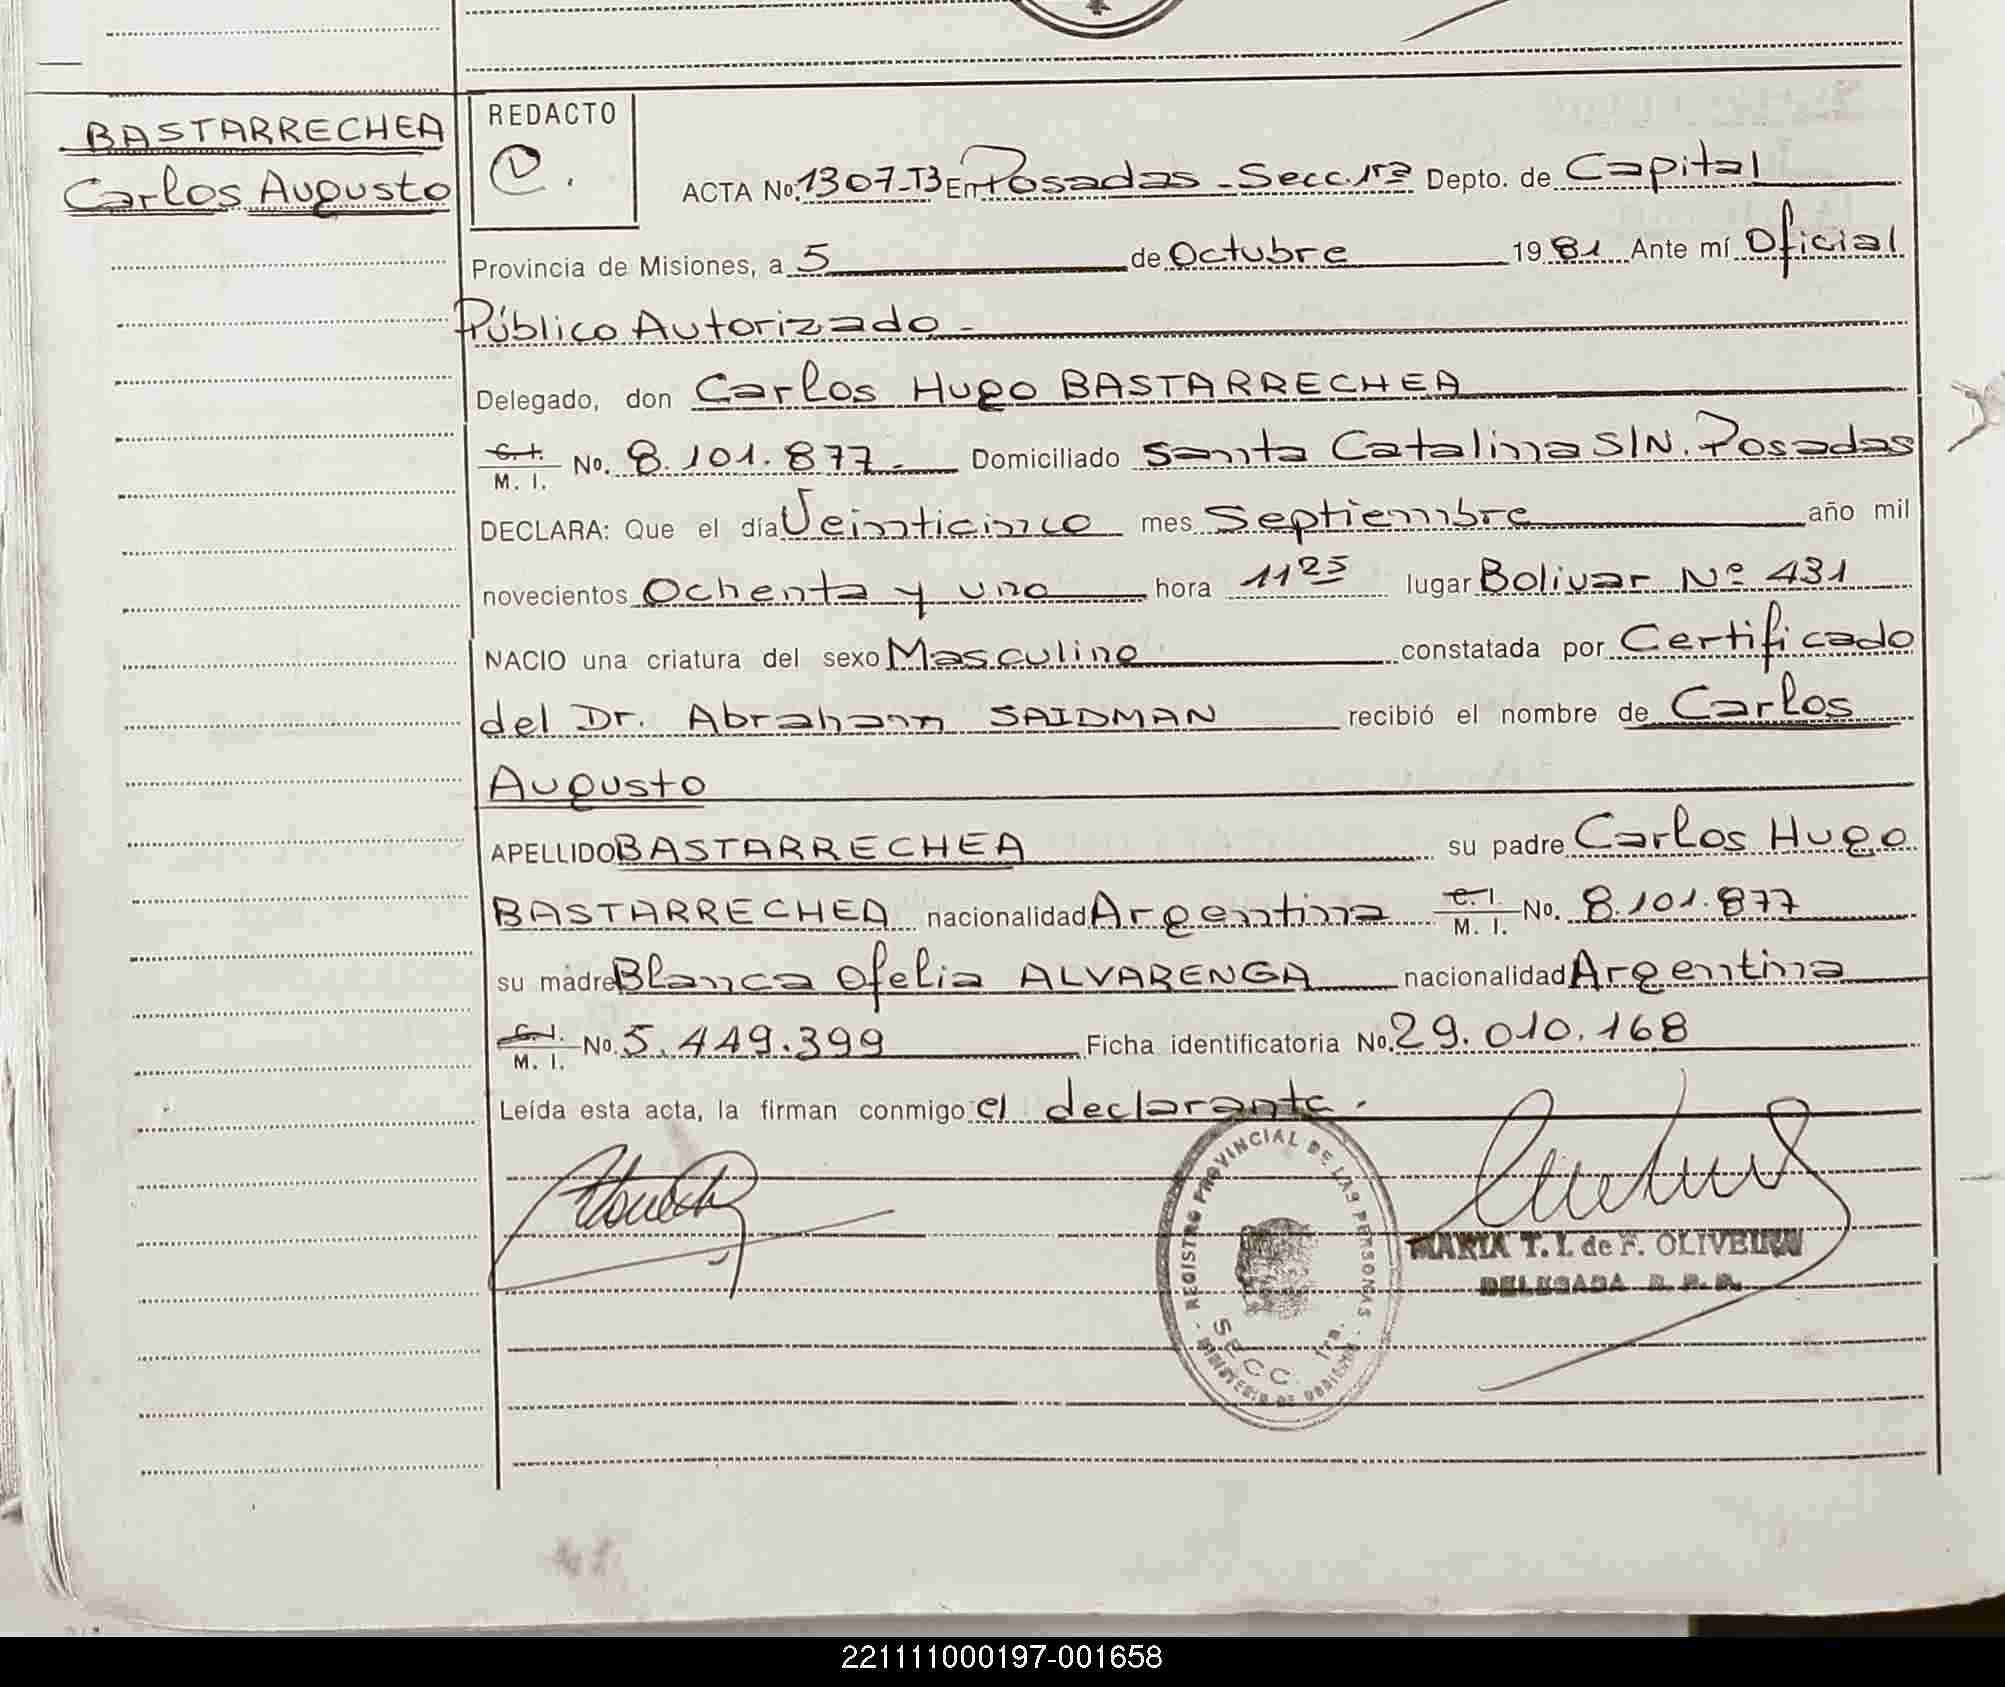 BASTARRECHEA
Carlos Augusto
REDACTO
ACTA No. 1307-T3 En Posadas - Secc. 1ra Depto. de Capital
Provincia de Misiones, a 5 de Octubre 1981 Ante mí Oficial
Público Autorizado -
Delegado, don Carlos Hugo BASTARRECHEA
C. I. / M. I. No. 8.101.877.- Domiciliado Santa Catalina S/N. Posadas
DECLARA: Que el día Veinticinco mes Septiembre año mil
novecientos Ochenta y uno hora 11 25 lugar Bolivar Nº 431
NACIO una criatura del sexo Masculino constatada por Certificado
del Dr. Abraham SAIDMAN recibió el nombre de Carlos
Augusto
APELLIDO BASTARRECHEA su padre Carlos Hugo
BASTARRECHEA nacionalidad Argentina C. I. / M. I. No. 8.101.877
su madre Blanca Ofelia ALVARENGA nacionalidad Argentina
C. I. / M. I. No. 5.449.399 Ficha identificatoria No. 29.010.168
Leída esta acta, la firman conmigo el declarante.
- REGISTRO PROVINCIAL DE LAS PERSONAS -
SECC. 1ra.
MINISTERIO DE GOBIERNO
MARIA T. I. de F. OLIVEIRA
DELEGADA R. P. P.
221111000197-001658